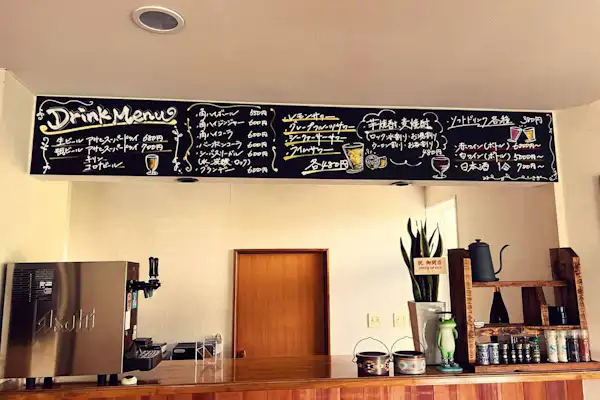 Drink Menu
生ビール アサヒスーパードライ 680円
瓶ビール アサヒスーパードライ 700円
キリン
コロナビール
角ハイボール 550円
角ハイジンジャー 600円
角ハイコーラ 600円
バーボンコーク 600円
シーバスリーガル 600円
(水、炭酸、ロック)
ブランデー 600円
レモンサワー
グレープフルーツサワー
シークヮーサーサワー
ライムサワー
各480円
芋焼酎、麦焼酎
(ロック・水割り・お湯割り
ウーロン割り・お茶割り)
480円
ソフトドリンク各種 380円
・赤ワイン(ボトル) 6000円〜
・白ワイン(ボトル) 5000円〜
・日本酒 1合 700円〜
Asahi
祝 御開店